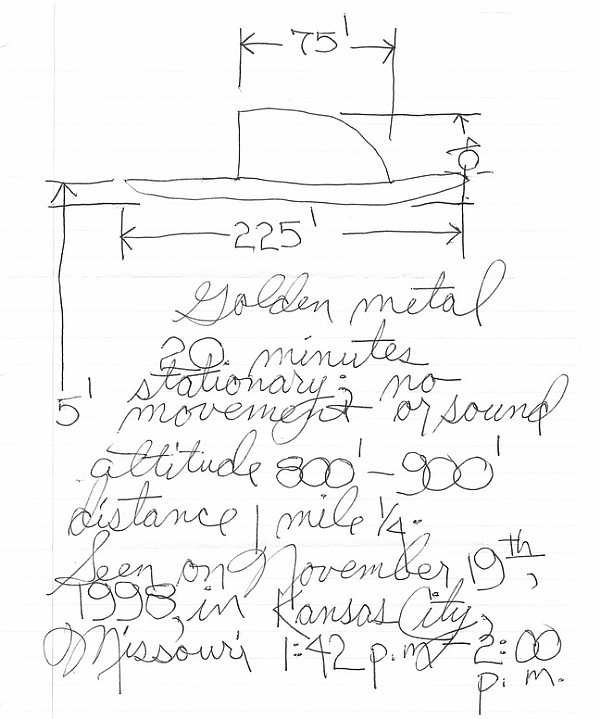 75'
40
225'
5'
Golden metal
20 minutes
stationary; no
movement or sound
attitude 800'-900'
distance 1 mile 1/4.
Seen on November 19th,
1998, in Kansas City,
Missouri 1:42 p.m - 2:00
p.m.